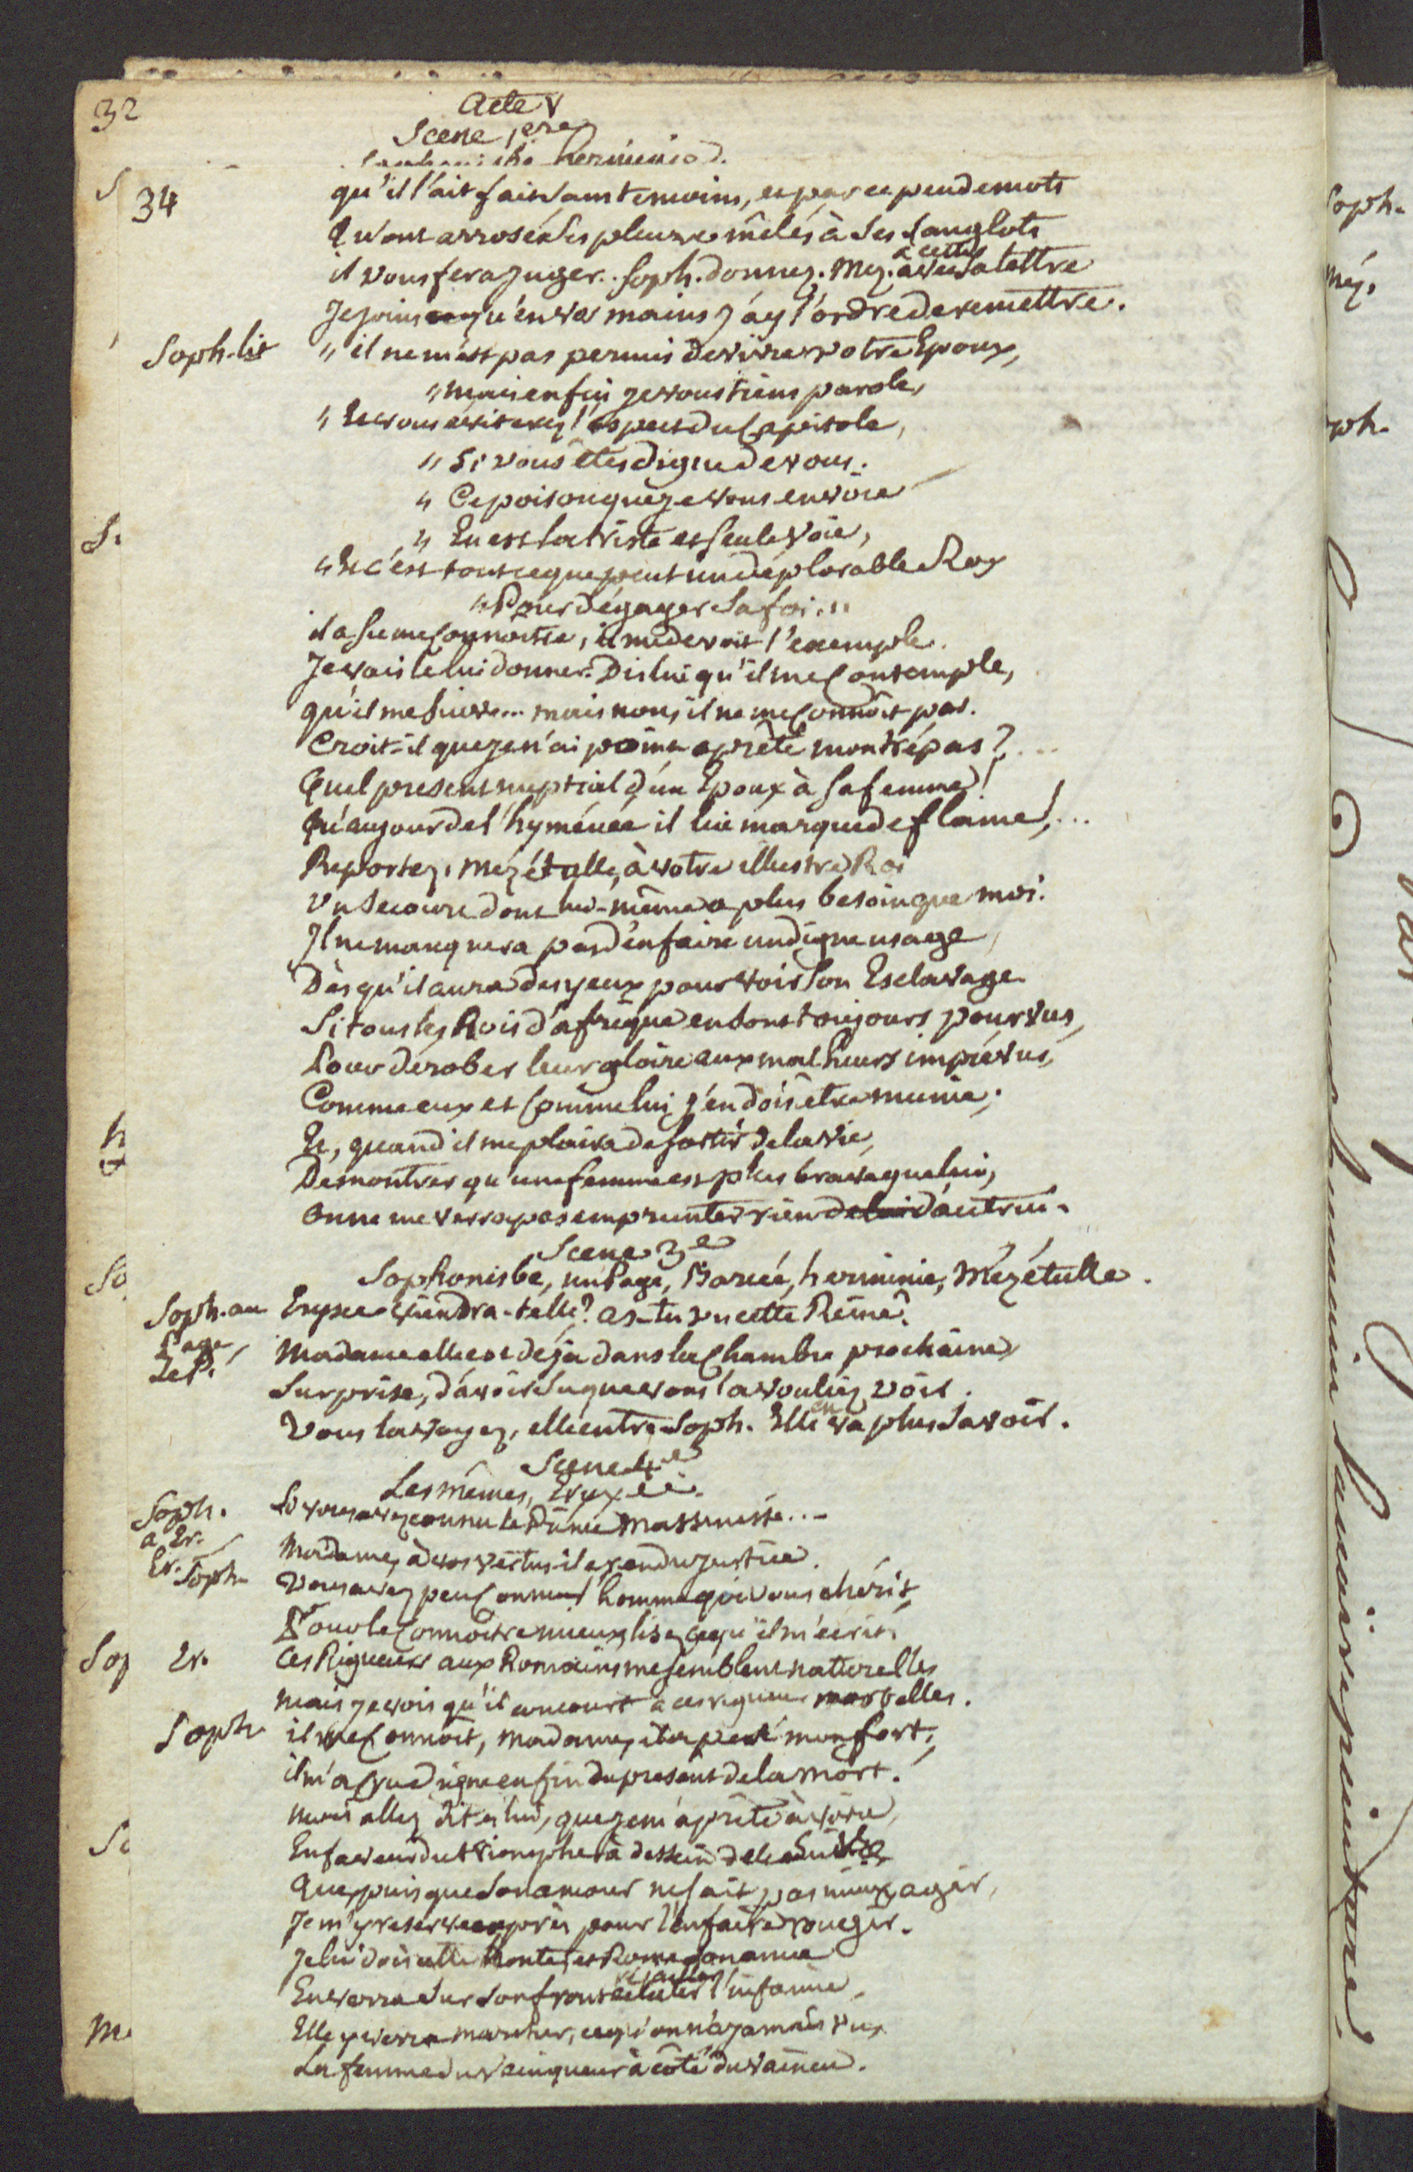 32
Acte V
Scene 1ere
herminie
34
qu'il l'ait fait sans temoins, et par ce peu de mots
Qu'ont arrosé ses pleurs mêlés à ses sanglots
il vous fera juger. Soph. donnez. Mez. avec sa lettre
a cette
Je joins ce qu'en vos mains j'ay l'ordre de remettre.
Soph. lit " il ne m'est pas permis de vivre votre Epoux,
" mais enfin je vous tiens parole,
" Et vous éviterez l'aspect du Capitole,
" Si vous êtes digne de vous.
" Ce poison que je vous envoie
" En est la triste et seule voie,
" Et c'est tout ce que peut un déplorable Roy
" Pour dégager sa foi. "
il a su me connoitre, il me devoit l'exemple.
Je vais le lui donner. Dis lui qu'il me contemple,
qu'il me suive... mais non, il ne me connoît pas.
Croit-il que je n'ai point aprêté mon trépas? ...
Quel present nuptial d'un Epoux à sa femme!
Qu'au jour de l'hyménée il lui marque de flame! ...
Reportez, Mézétulle, à votre illustre Roi
Un secours dont lui-même a plus besoin que moi.
Il ne manquera pas d'en faire un digne usage
Dès qu'il aura des yeux pour voir son Esclavage
Si tous les Rois d'afrique en sont toujours pourvus,
Pour dérober leur gloire aux malheurs imprévus,
Comme eux et comme lui j'en dois être munie;
Et, quand il me plaira de sortir de la vie,
De montrer qu'une femme est plus brave que lui,
on ne me verra pas emprunter rien de lui d'autrui.
Scene 3e
Sophonisbe, un Page, Barcée, herminie, Mézétulle.
Soph. au Page Eryxe viendra-telle? as-tu vu cette Reine?
Le P. Madame elle est déja dans la Chambre prochaine
Surprise, d'avoir su que vous la vouliez voir.
Vous la voyez, elle entre. Soph. Elle en va plus savoir.
Scene 4e
Les mêmes, Eryxe.
Soph. a Er. Si vous avez connu le Prince Massinisse...
Er. Madame, à vos vertus il a rendu justice.
Soph. Vous avez peu connu l'homme qui vous chérit,
Pour le connoitre mieux lisez ce qu'il m'écrit.
Er. Ces Rigueurs aux Romains me semblent naturelles
mais je vois qu'il concourt a ces rigueurs
Soph. il me connoit, madame, et a pesé mon sort,
il m'a cru digne enfin du present de la mort.
mais allez dites lui, que je m'aprête à vivre,
En faveur du triomphe à dessein de le suivre
Que, puisque son amour ne sait pas mieux agir,
Je m'y reserve exprès pour l'en faire rougir.
Je lui dois cette honte, et Rome son amie
En verra sur son front éclater l'infamie,
Elle y verra marcher, ce qu'on n'a jamais vu,
La femme du vainqueur à côté du vaincu.
Soph.
Mez.